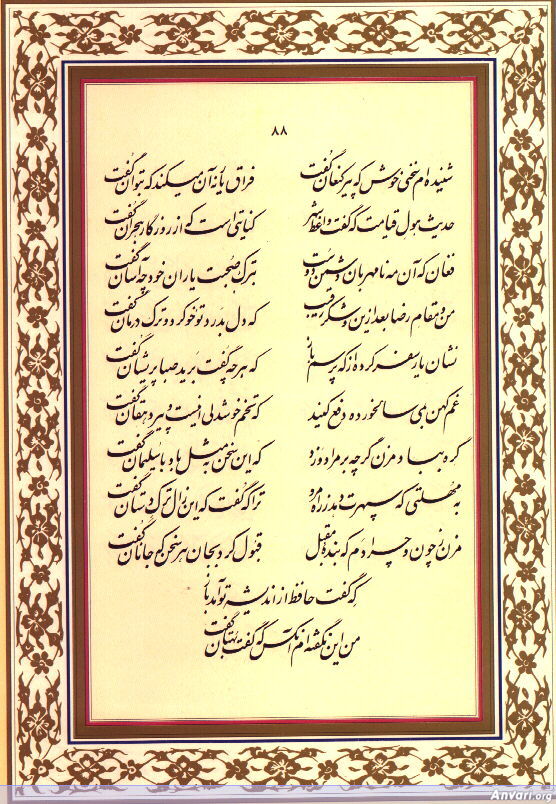 ۸۸
شنیده‌ام سخنی خوش که پیر کنعان گفت فراق یار نه آن میکند که بتوان گفت
حدیث هول قیامت که گفت واعظ شهر کنایتی است که از روزگار هجران گفت
فغان که آن مه نامهربان دشمن دوست بترک صحبت یاران خود چه آسان گفت
من و مقام رضا بعد ازین و شکر رقیب که دل بدرد تو خو کرد و ترک درمان گفت
نشان یار سفر کرده از که پرسم باز که هر چه گفت برید صبا پریشان گفت
غم کهن بمی سالخورده دفع کنید که تخم خوشدلی اینست و پیر دهقان گفت
گره بباد مزن گرچه بر مراد وزد که این سخن به مثل باد با سلیمان گفت
به مهلتی که سپهرت دهد ز راه مرو ترا که گفت که این زال ترک دستان گفت
مزن ز چون و چرا دم که بنده مقبل قبول کرد بجان هر سخن که جانان گفت
که گفت حافظ از اندیشه تو آمد باز
من این نگفته‌ام آنکس که گفت بهتان گفت
Anvari.org